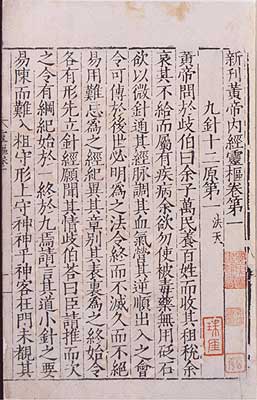 新刊黃帝內經靈樞卷第一
九針十二原第一 法天
黃帝問於歧伯曰余子萬民養百姓而收其租稅余
哀其不給而屬有疾病余欲勿使被毒藥無用砭石
欲以微針通其經脉調其血氣營其逆順出入之會
令可傳於後世必明為之法令終而不滅久而不絕
易用難忘為之經紀異其章別其表裏為之終始令
各有形先立針經願聞其情歧伯荅曰臣請推而次
之令有綱紀始於一終於九焉請言其道小針之要
易陳而難入粗守形上守神神乎神客在門未覩其